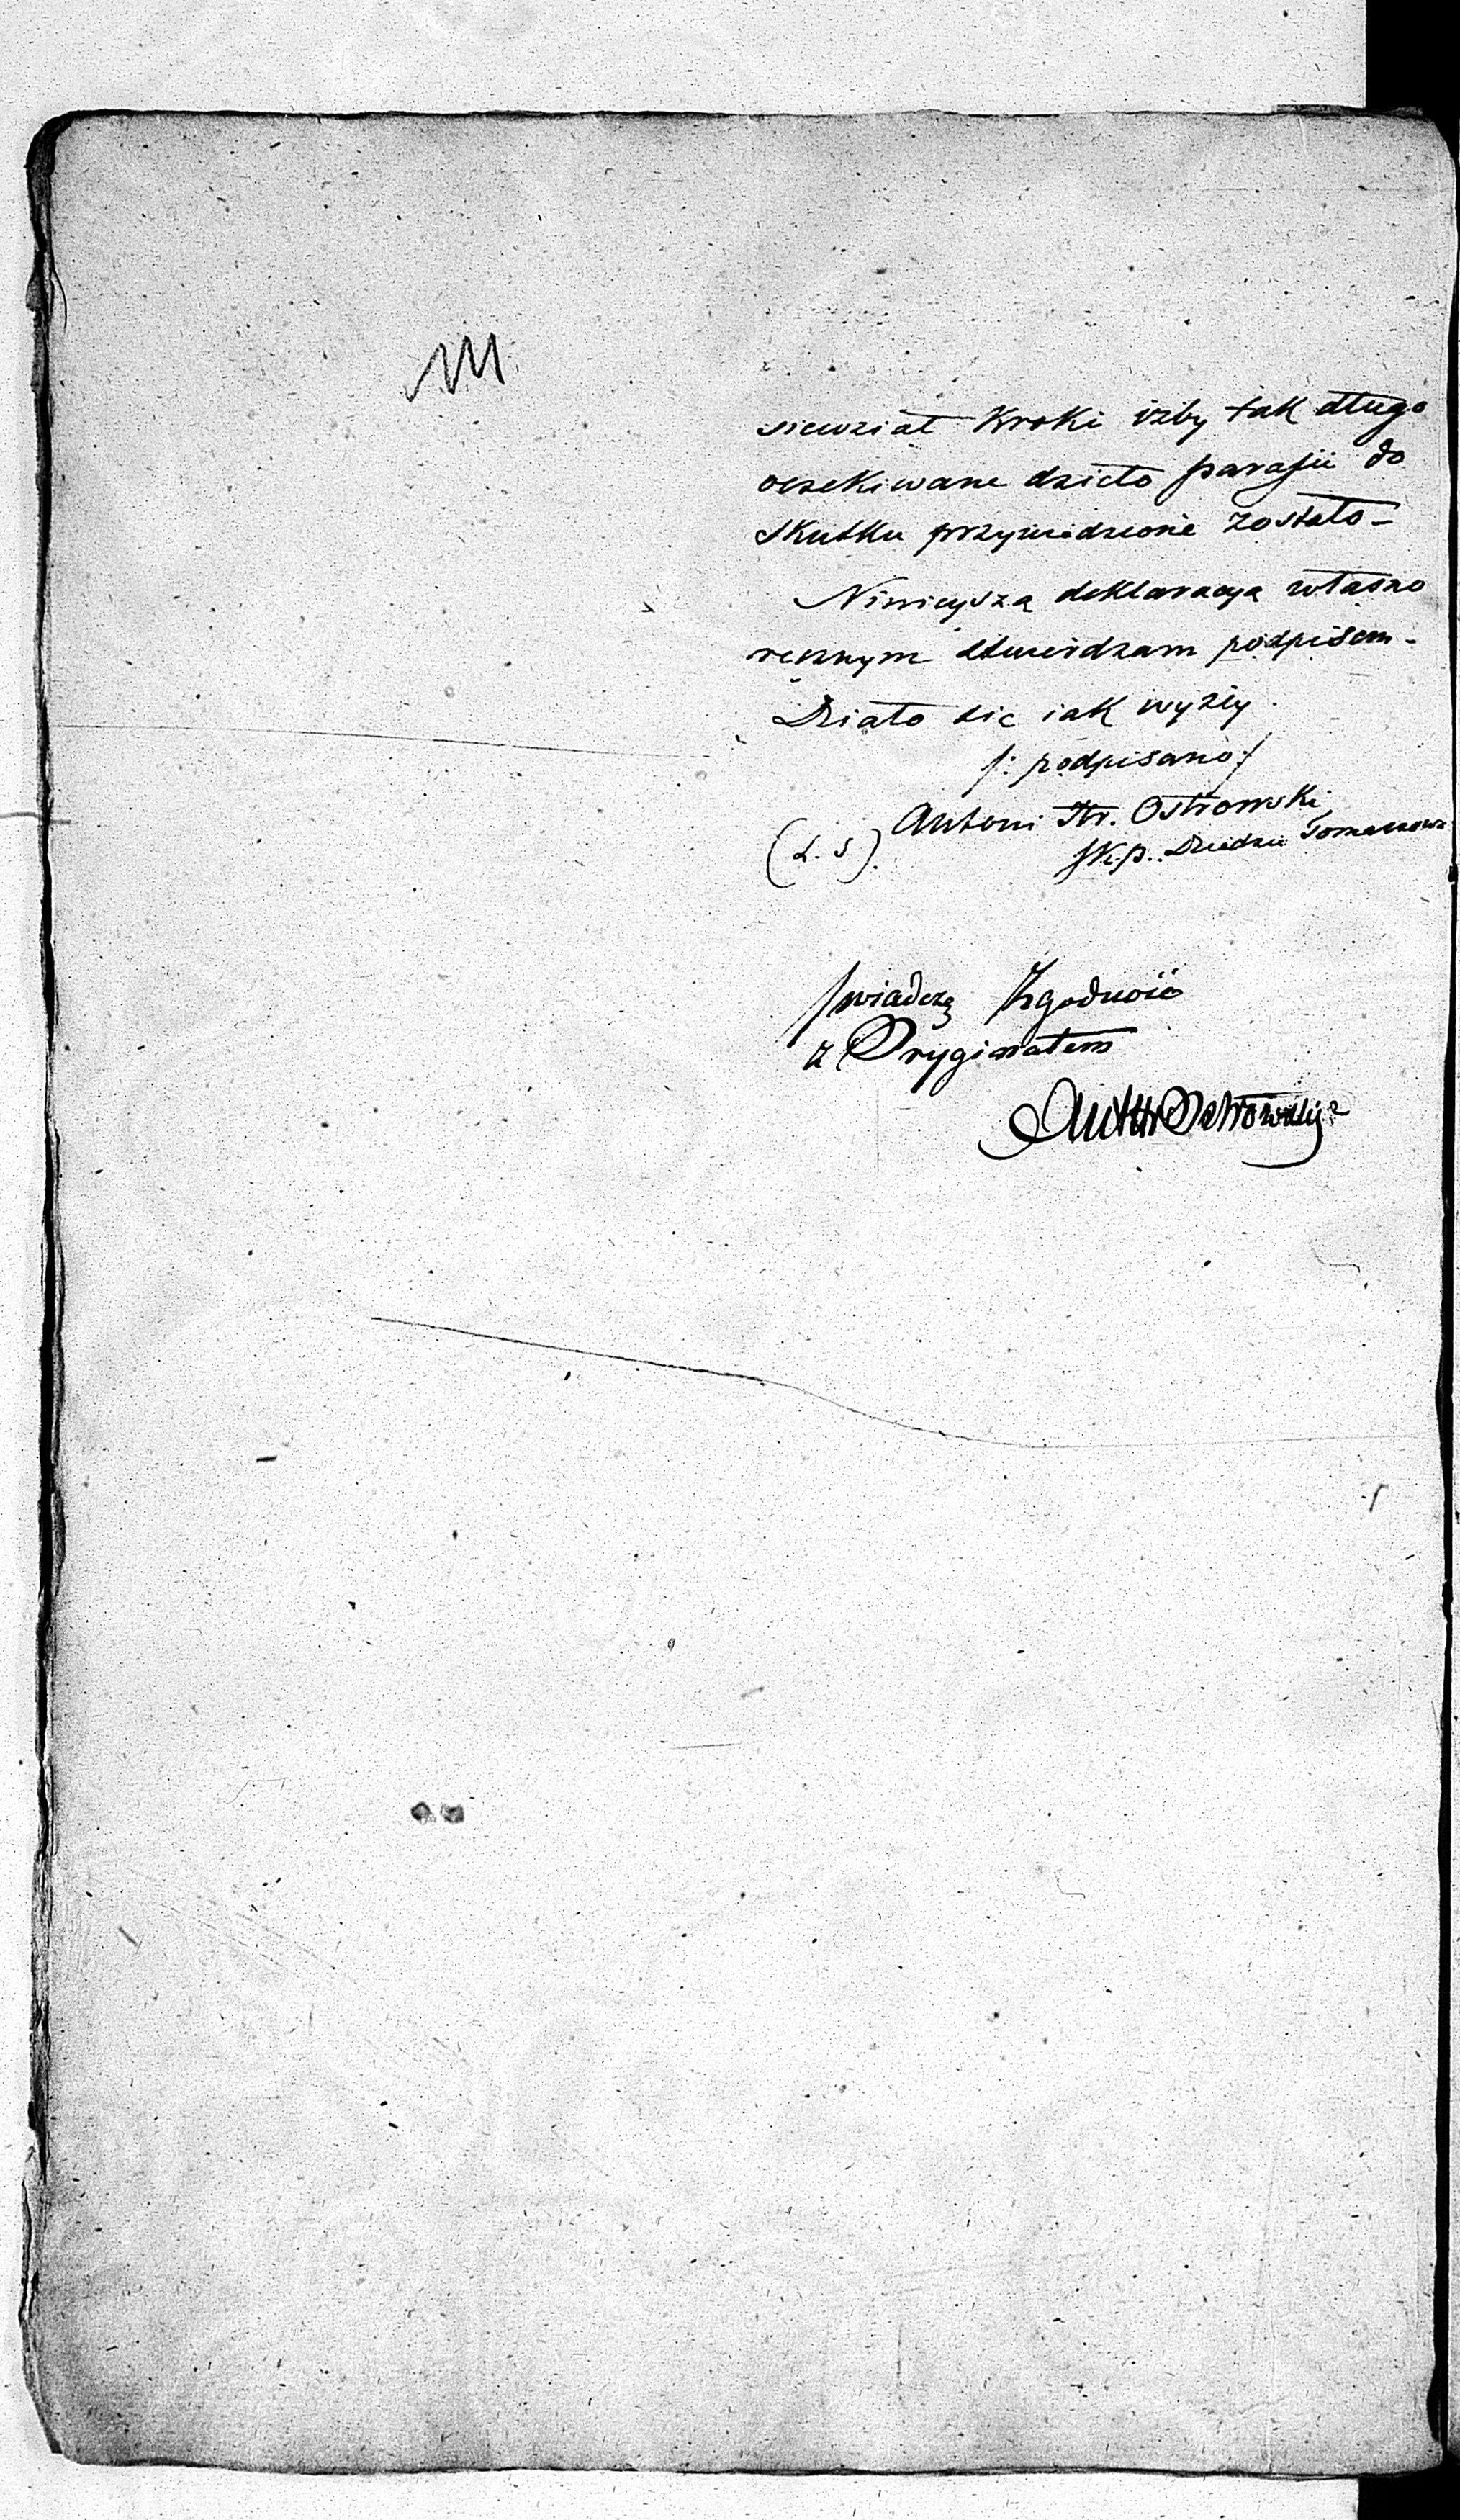 siewział kroki iżby tak długo
oczekiwane dzieło parafii do
skutku przywiedzione zostało -
Ninieysza deklaracya własno
ręcznym stwierdzam podpisem -
Działo się iak wyżey.
/: podpisano :/
Antoni Hr. Ostrowski
(L. S). Dziedzic Tomaszowa
Swiadczę Zgodność
z Oryginałem
Ant Hr Ostrowski